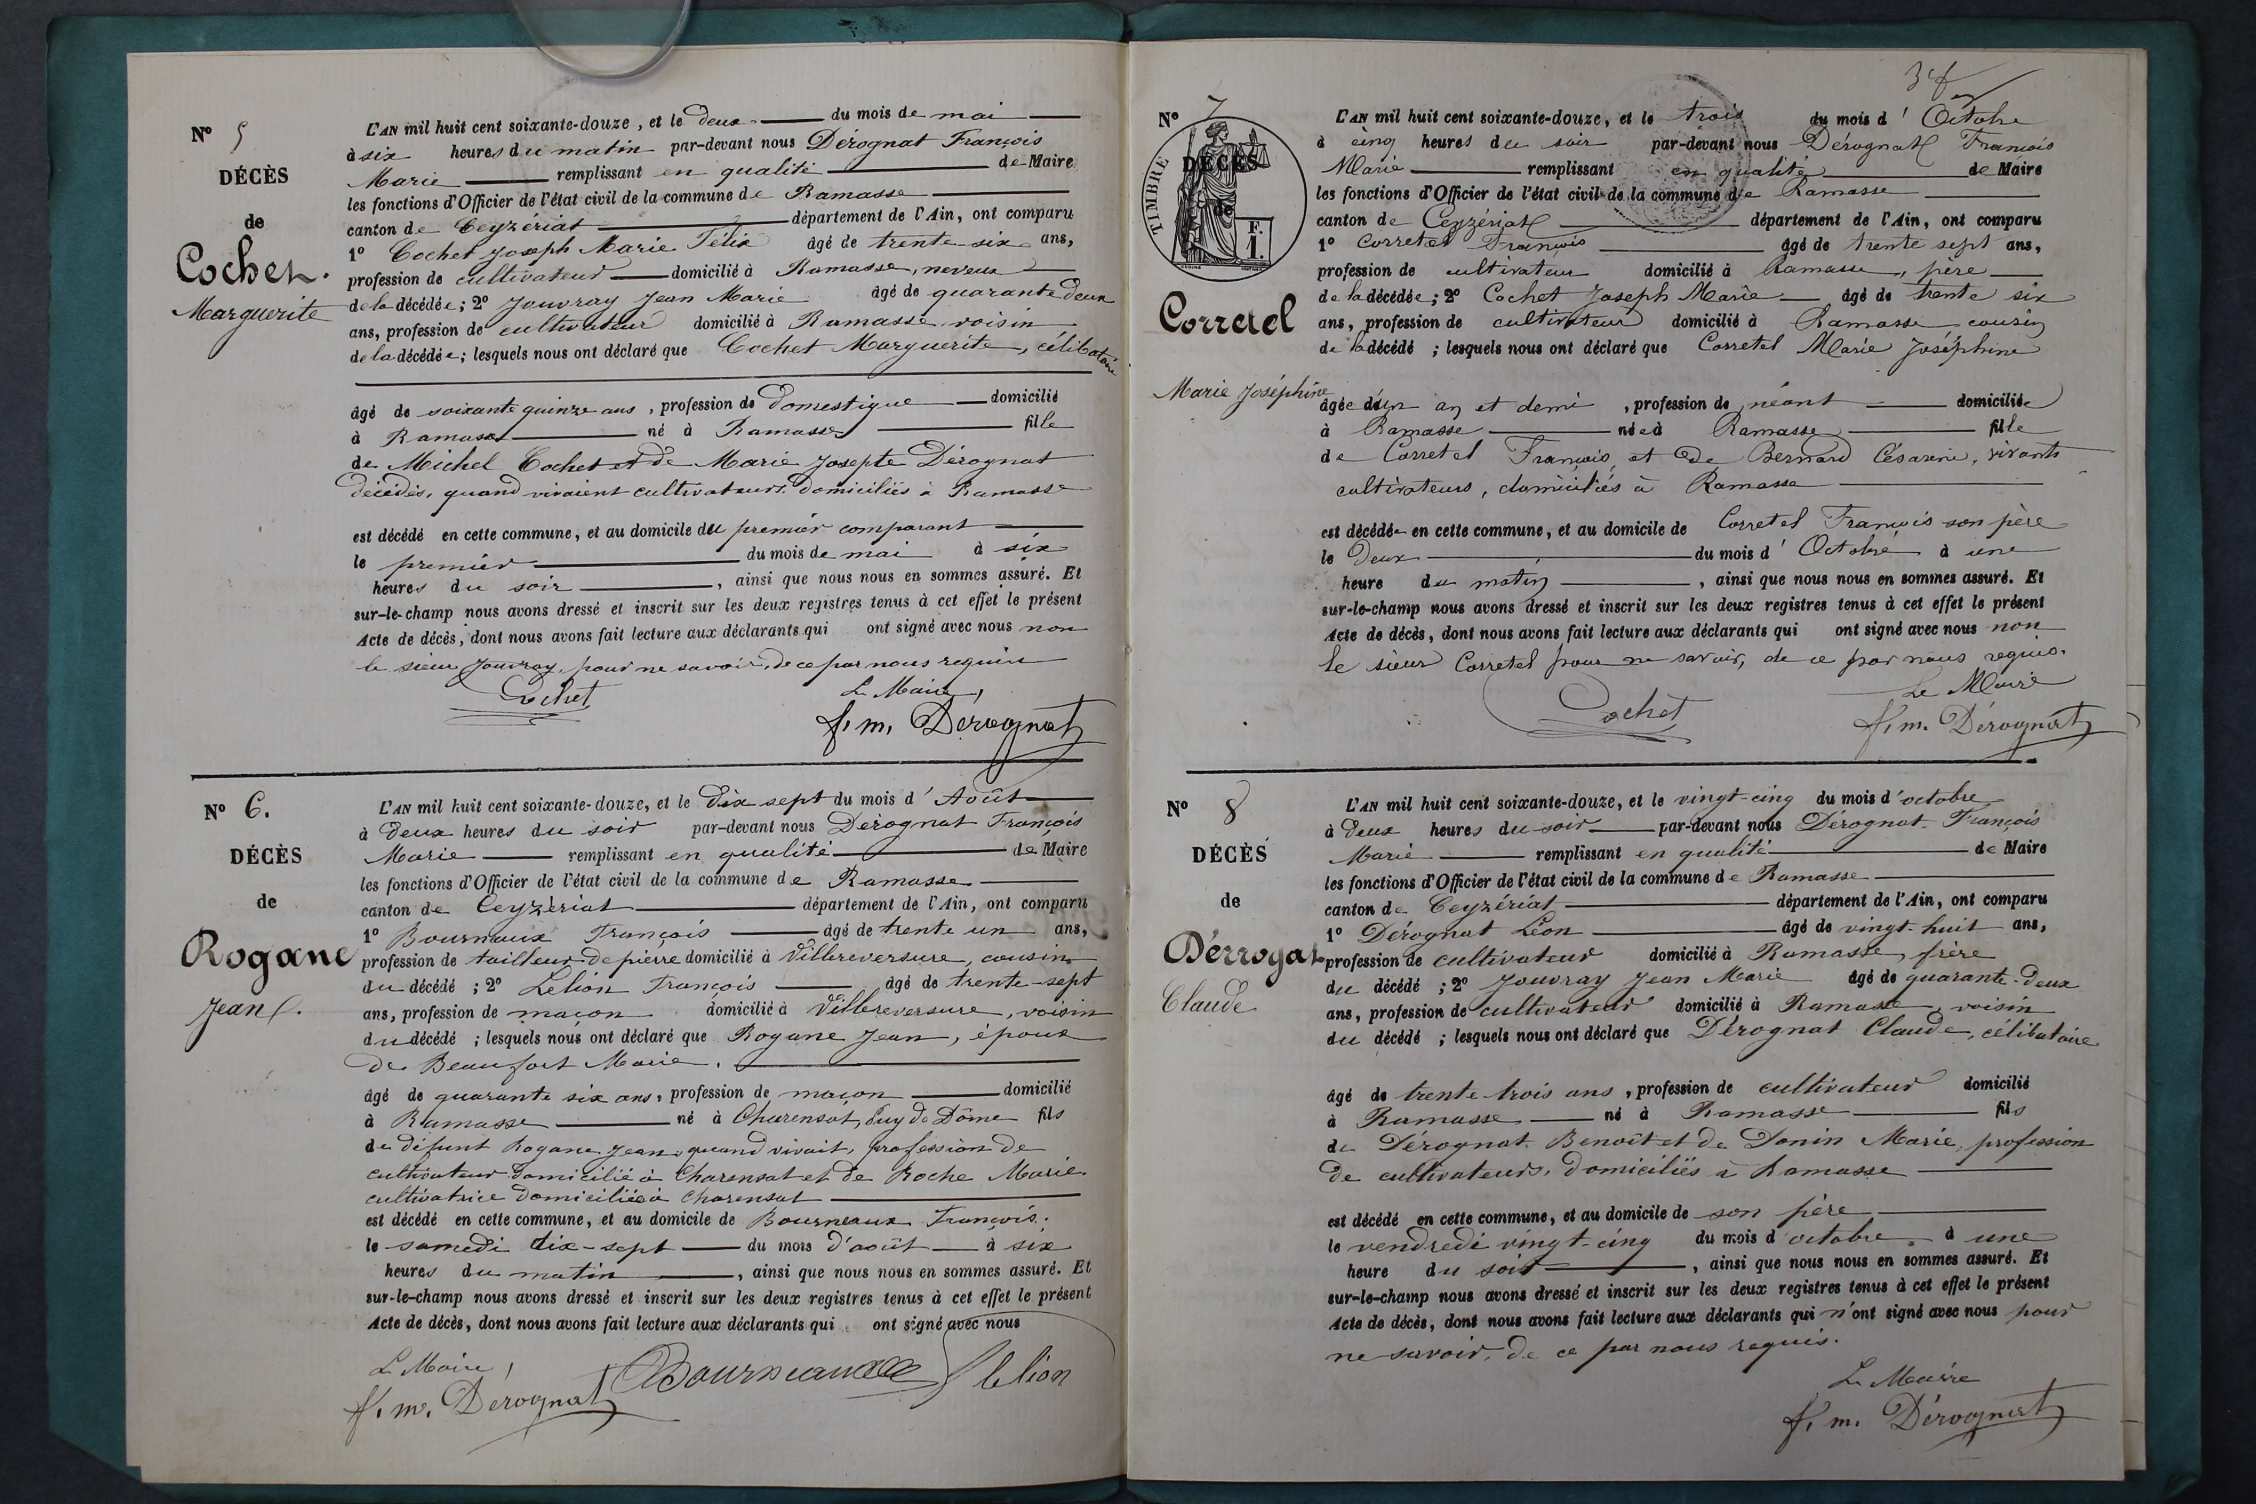 Nº 5
DÉCÈS
de
Cochet.
Marguerite
L'AN mil huit cent soixante-douze, et le deux du mois de mai
à six heures du matin par-devant nous Dérognat François
Marie remplissant en qualité de Maire
les fonctions d'Officier de l'état civil de la commune de Ramasse
canton de Ceyzériat département de l'Ain, ont comparu
1º Cochet Joseph Marie Félix âgé de trente six ans,
profession de cultivateur domicilié à Ramasse, neveux
de la décédée; 2º Jouvray Jean Marie âgé de quarante deux
ans, profession de cultivateur domicilié à Ramasse voisin
de la décédée; lesquels nous ont déclaré que Cochet Marguerite, célibataire
âgé de soixante quinze ans, profession de domestique domicilié
à Ramasse né à Ramasse fille
de Michel Cochet et de Marie Josepte Dérognat
décédés, quand vivaient cultivateurs domiciliés à Ramasse
est décédé en cette commune, et au domicile du premier comparant
le premier du mois de mai à six
heures du soir, ainsi que nous nous en sommes assuré. Et
sur-le-champ nous avons dressé et inscrit sur les deux registres tenus à cet effet le présent
Acte de décès, dont nous avons fait lecture aux déclarants qui ont signé avec nous non
le sieur Jouvray, pour ne savoir, de ce par nous requis
Cochet Le Maire,
f. m. Dérognat
Nº 6.
DÉCÈS
de
Rogane
Jean.
L'AN mil huit cent soixante-douze, et le dix sept du mois d'Août
à deux heures du soir par-devant nous Dérognat François
Marie remplissant en qualité de Maire
les fonctions d'Officier de l'état civil de la commune de Ramasse
canton de Ceyzériat département de l'Ain, ont comparu
1º Bourneaux François âgé de trente un ans,
profession de tailleur de pierre domicilié à Villereversure, cousin
du décédé; 2º Lelion François âgé de trente-sept
ans, profession de maçon domicilié à Villereversure, voisin
du décédé; lesquels nous ont déclaré que Rogane Jean, époux
de Beaufort Marie.
âgé de quarante six ans, profession de maçon domicilié
à Ramasse né à Charensat, Puy de Dôme fils
de défunt Rogane Jean, quand vivait, profession de
cultivateur domicilié à Charensat et de Roche Marie
cultivatrice domiciliée à Charensat
est décédé en cette commune, et au domicile de Bourneaux François.
le samedi dix-sept du mois d'août à six
heures du matin, ainsi que nous nous en sommes assuré. Et
sur-le-champ nous avons dressé et inscrit sur les deux registres tenus à cet effet le présent
Acte de décès, dont nous avons fait lecture aux déclarants qui ont signé avec nous
Le Maire,
f. m. Dérognat Bourneaux lelion
Nº 7
TIMBRE
DÉCÈS
de
F.
1.
Corretel
Marie Joséphine
L'AN mil huit cent soixante-douze, et le trois du mois d'Octobre
à cinq heures du soir par-devant nous Dérognat François
Marie remplissant en qualité de Maire
les fonctions d'Officier de l'état civil de la commune de Ramasse
canton de Ceyzériat département de l'Ain, ont comparu
1º Corretel François âgé de trente sept ans,
profession de cultivateur domicilié à Ramasse, père
de la décédée; 2º Cochet Joseph Marie âgé de trente six
ans, profession de cultivateur domicilié à Ramasse cousin
de la décédé; lesquels nous ont déclaré que Corretel Marie Joséphine
âgée d'un an et demi, profession de néant domiciliée
à Ramasse née à Ramasse fille
de Corretel François et de Bernard Césarine, vivants
cultivateurs, domiciliés à Ramasse
est décédée en cette commune, et au domicile de Corretel François son père
le deux du mois d'Octobre à une
heure du matin, ainsi que nous nous en sommes assuré. Et
sur-le-champ nous avons dressé et inscrit sur les deux registres tenus à cet effet le présent
Acte de décès, dont nous avons fait lecture aux déclarants qui ont signé avec nous non
le sieur Corretel pour ne savoir, de ce par nous requis.
Cochet Le Maire
f. m. Dérognat
Nº 8
DÉCÈS
de
Dérrogat
Claude
L'AN mil huit cent soixante-douze, et le vingt-cinq du mois d'octobre
à deux heures du soir par-devant nous Dérognat François
Marie remplissant en qualité de Maire
les fonctions d'Officier de l'état civil de la commune de Ramasse
canton de Ceyzériat département de l'Ain, ont comparu
1º Dérognat Léon âgé de vingt-huit ans,
profession de cultivateur domicilié à Ramasse, frère
du décédé; 2º Jouvray Jean Marie âgé de quarante-deux
ans, profession de cultivateur domicilié à Ramasse, voisin
du décédé; lesquels nous ont déclaré que Dérognat Claude, célibataire
âgé de trente-trois ans, profession de cultivateur domicilié
à Ramasse né à Ramasse fils
de Dérognat Benoit et de Donin Marie, profession
de cultivateurs, domiciliés à Ramasse
est décédé en cette commune, et au domicile de son père
le vendredi vingt-cinq du mois d'octobre à une
heure du soir, ainsi que nous nous en sommes assuré. Et
sur-le-champ nous avons dressé et inscrit sur les deux registres tenus à cet effet le présent
Acte de décès, dont nous avons fait lecture aux déclarants qui n'ont signé avec nous pour
ne savoir, de ce par nous requis.
Le Maire
f. m. Dérognat